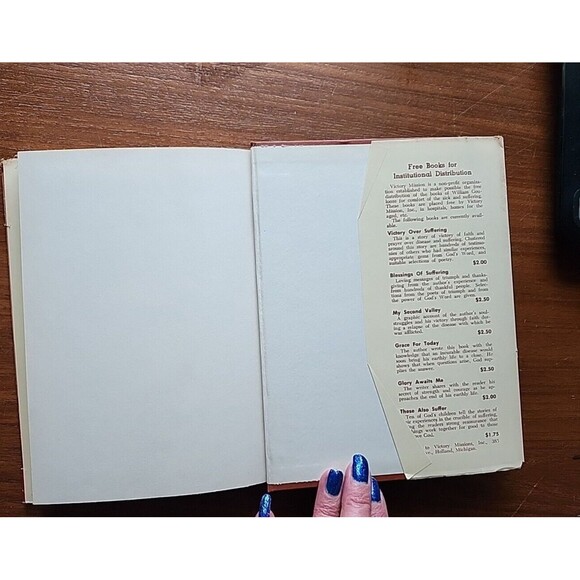 Free Books for
Institutional Distribution
Victory Mission is a non-profit organiza-
tion established to make possible the free
distribution of the books of William Gou-
loozе for comfort of the sick and suffering.
These books are placed free by Victory
Mission, Inc., in hospitals, homes for the
aged, etc.
The following books are currently avail-
able.
Victory Over Suffering
This is a story of victory of faith and
prayer over disease and suffering. Clustered
around this story are hundreds of testimo-
nies of others who had similar experiences,
appropriate gems from God's Word, and
suitable selections of poetry.
$2.00
Blessings Of Suffering
Loving messages of triumph and thanks-
giving from the author's experience; and
from hundreds of thankful people. Selec-
tions from the poets of triumph and from
the power of God's Word are given.
$2.50
My Second Valley
A graphic account of the author's soul-
struggles and his victory through faith dur-
ing a relapse of the disease with which he
was afflicted.
$2.50
Grace For Today
The author wrote this book with the
knowledge that an incurable disease would
soon bring his earthly life to a close. He
shows that when questions arise, God sup-
plies the answer.
$2.50
Glory Awaits Me
The writer shares with the reader his
secret of strength and courage as he ap-
proaches the end of his earthly life.
$2.00
These Also Suffer
Ten of God's children tell the stories of
ir experiences in the crucible of suffering,
ng the readers strong reassurance that
hings work together for good to those
ove God.
$1.75
to Victory Missions, Inc., 287
ve., Holland, Michigan